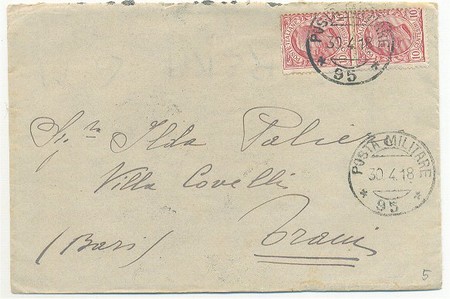 POSTA MILITARE
30.4.18
95
10 10
Sig.ra Ilda
Villa Covelli
(Bari) Trani
POSTA MILITARE
30.4.18
95
5